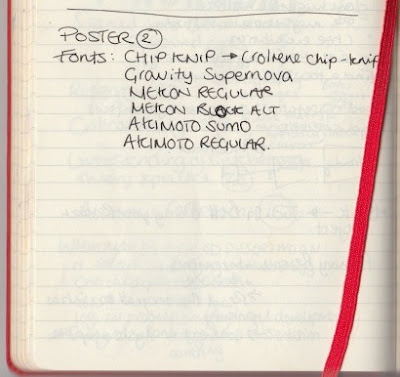 POSTER ②
Fonts: CHIP KNIP → Crolrene chip-knip
Gravity Supernova
MEKON REGULAR
MEKON BLOCK ALT
AKIMOTO SUMO
AKIMOTO REGULAR.